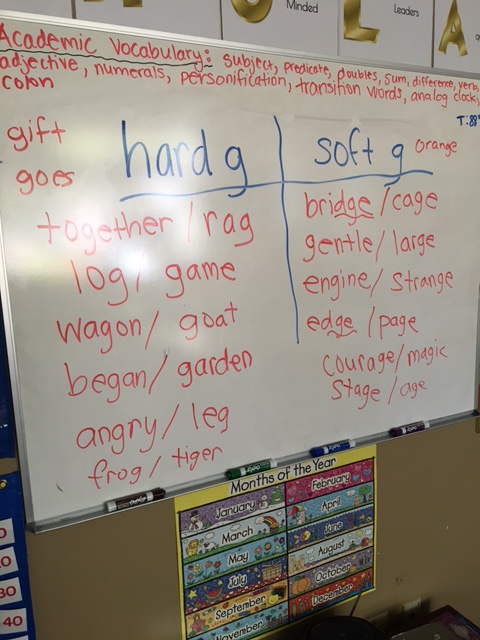 Minded
Leaders
Academic Vocabulary: subject, predicate, doubles, sum, difference, verb,
adjective, numerals, personification, transition words, analog clock,
colon
gift
goes
hard g
soft g
orange
together / rag
log / game
wagon / goat
began / garden
angry / leg
frog / tiger
bridge / cage
gentle / large
engine / strange
edge / page
courage / magic
stage / age
EXPO
EXPO
EXPO
EXPO
Months of the Year
January
February
March
April
May
June
July
August
September
October
November
December
30
40